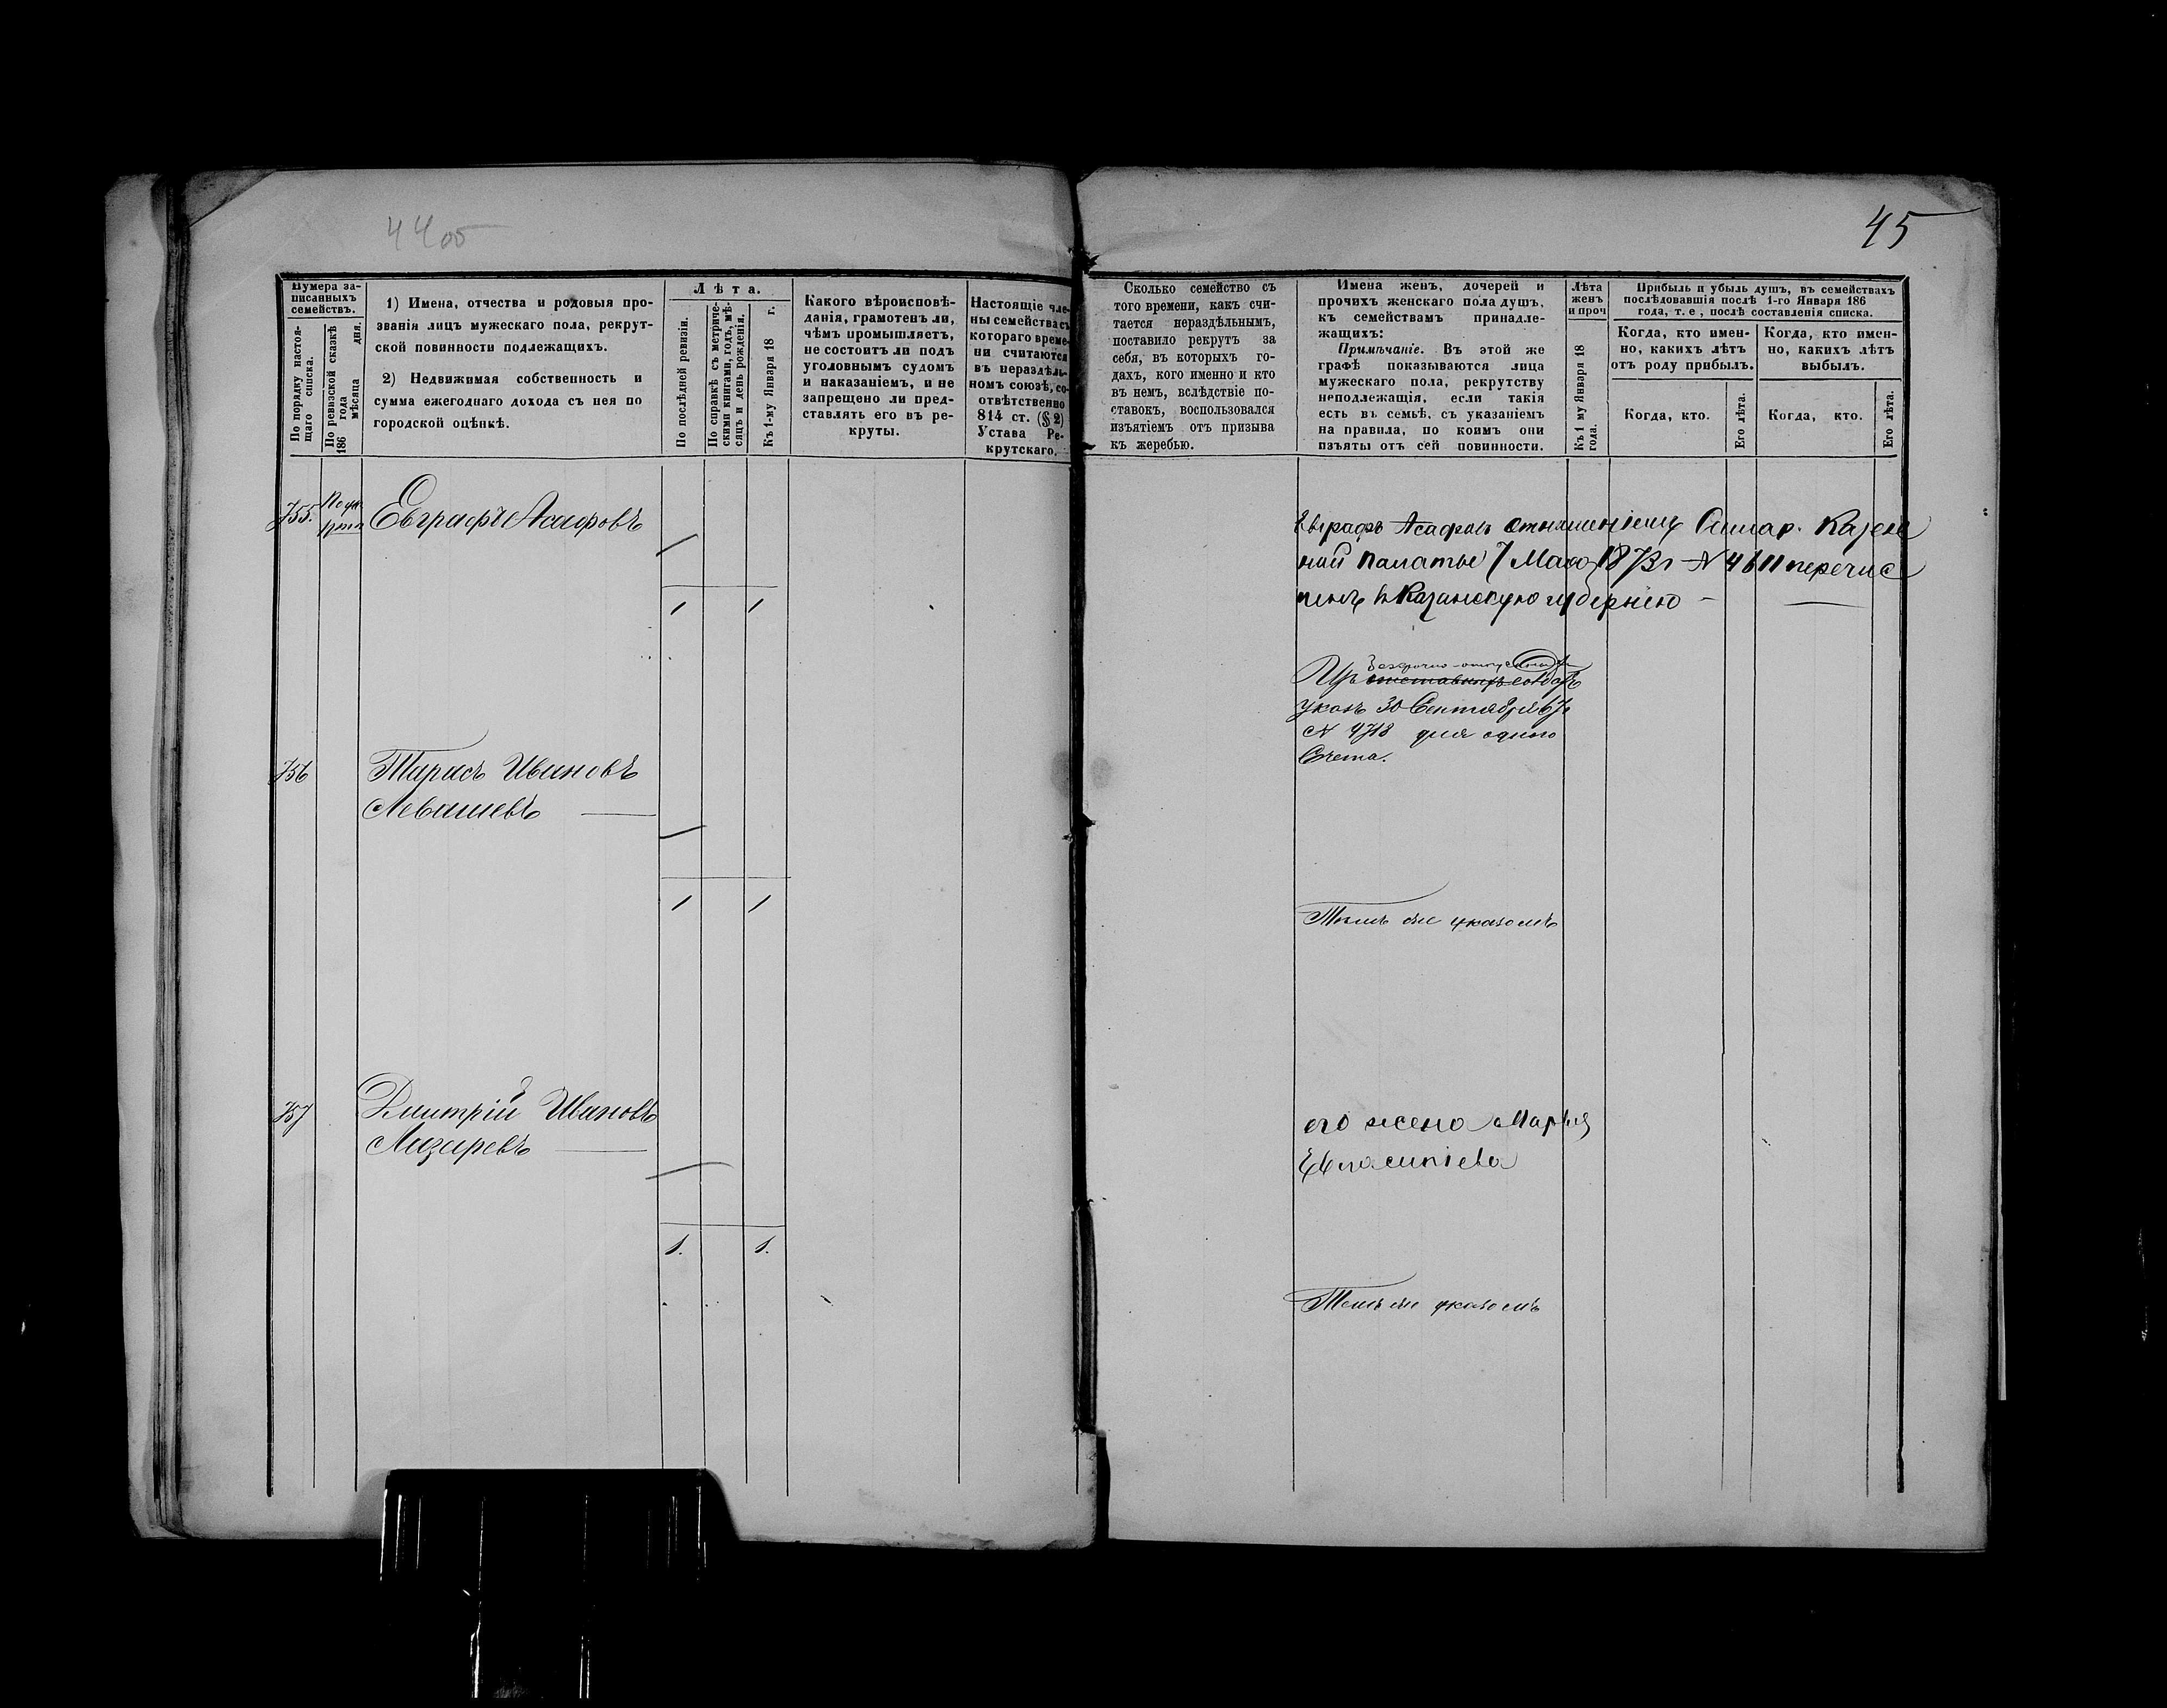 44об
45
Нумера за-
писанныхъ
семействъ.
По порядку настоя-
щаго списка.
По ревизской сказкѣ
186 года
мѣсяца дня.
1) Имена, отчества и родовыя про-
званія лицъ мужескаго пола, рекрут-
ской повинности подлежащихъ.
2) Недвижимая собственность и
сумма ежегоднаго дохода съ нея по
городской оцѣнкѣ.
Лѣта.
По послѣдней ревизіи.
По справкѣ съ метриче-
скими книгами, годъ, мѣ-
сяцъ и день рожденія.
Къ 1-му Января 18 г.
Какого вѣроисповѣ-
данія, грамотенъ ли,
чѣмъ промышляетъ,
не состоитъ ли подъ
уголовнымъ судомъ
и наказаніемъ, и не
запрещено ли пред-
ставлять его въ ре-
круты.
Настоящіе чле-
ны семейства съ
котораго време-
ни считаются
въ нераздѣль-
номъ союзѣ, со-
отвѣтственно
814 ст. (§ 2)
Устава Ре-
крутскаго.
Сколько семейство съ
того времени, какъ счи-
тается нераздѣльнымъ,
поставило рекрутъ за
себя, въ которыхъ го-
дахъ, кого именно и кто
въ немъ, вслѣдствіе по-
ставокъ, воспользовался
изъятіемъ отъ призыва
къ жеребью.
Имена женъ, дочерей и
прочихъ женскаго пола душъ,
къ семействамъ принадле-
жащихъ:
Примѣчаніе. Въ этой же
графѣ показываются лица
мужескаго пола, рекрутству
неподлежащія, если такія
есть въ семьѣ, съ указаніемъ
на правила, по коимъ они
изъяты отъ сей повинности.
Лѣта
женъ
и проч
Къ 1 му Января 18
года.
Прибыль и убыль душъ, въ семействахъ
послѣдовавшія послѣ 1-го Января 186
года, т. е., послѣ составленія списка.
Когда, кто имен-
но, какихъ лѣтъ
отъ роду прибылъ.
Когда, кто имен-
но, какихъ лѣтъ
выбылъ.
Когда, кто.
Его лѣта.
Когда, кто.
Его лѣта.
755.
Евграфъ Асафовъ
1 1
Евграфъ Асафовъ отношеніемъ Самар. Казен
ной Палаты 7 Мая 1873 г № 4611 перечис
ленъ въ Казанскую губернію
Изъ отставныхъ
указъ 30 Сентября 67 г
№ 4718 для одного
Счета.
756
Тарасъ Ивановъ
Левашевъ
1 1
Тѣмъ же указомъ
757
Дмитрій Ивановъ
Лазаревъ
1. 1.
его жена Марья
Тѣмъ же указомъ